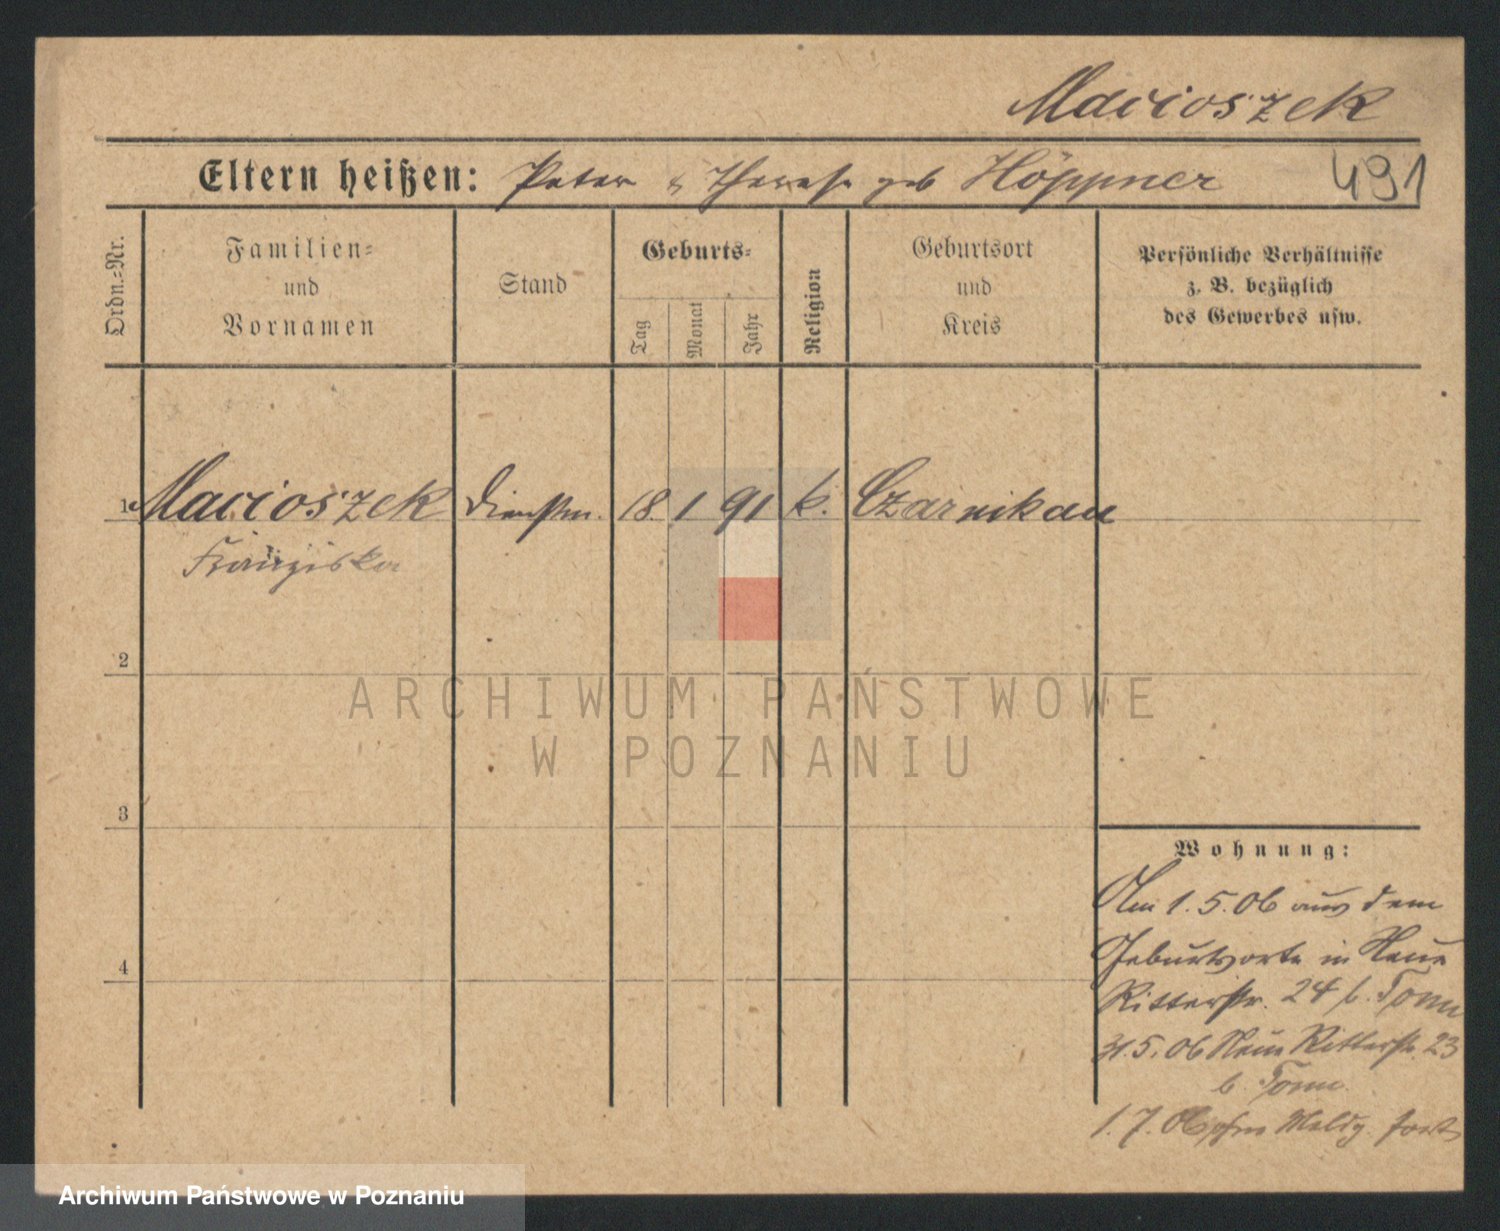 Macioszek
Eltern heißen: Peter u Therese geb Höppner 491
Ordn.-Nr.
Familien-
und
Vornamen
Stand
Geburts-
Tag
Monat
Jahr
Religion
Geburtsort
und
Kreis
Persönliche Verhältnisse
z. B. bezüglich
des Gewerbes usw.
1 Macioszek Dienstm. 18. 1 91 k. Czarnikau
Franziska
2
ARCHIWUM PAŃSTWOWE
W POZNANIU
3
Wohnung:
Am 1.5.06 aus dem
Geburtsorte in Neue
Ritterstr. 24 b. Tonn
31.5.06 Neue Ritterstr. 23
b. Tonn
1.7.06 ohne Meldg. fort
4
Archiwum Państwowe w Poznaniu